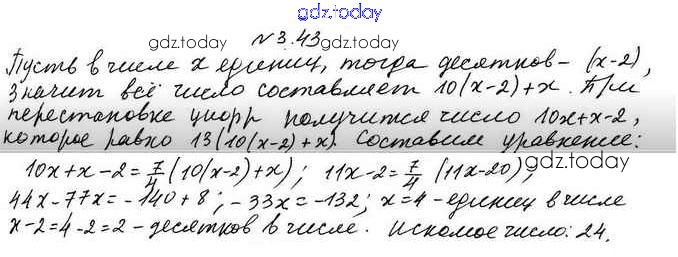 gdz.today
№3.43
gdz.today gdz.today
Пусть в числе x единиц, тогда десятков – (x-2),
Значит всё число составляет 10(x-2)+x. При
перестановке цифр получится число 10x+x-2,
которое равно 13(10(x-2)+x). Составим уравнение:
10x+x-2=7/4(10(x-2)+x); 11x-2=7/4(11x-20);
gdz.today gdz.today
44x-77x=-140+8; -33x=-132; x=4-единиц в числе
x-2=4-2=2-десятков в числе. Искомое число: 24.